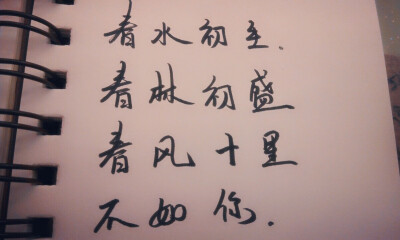 春水初生.
春林初盛
春风十里
不如你.